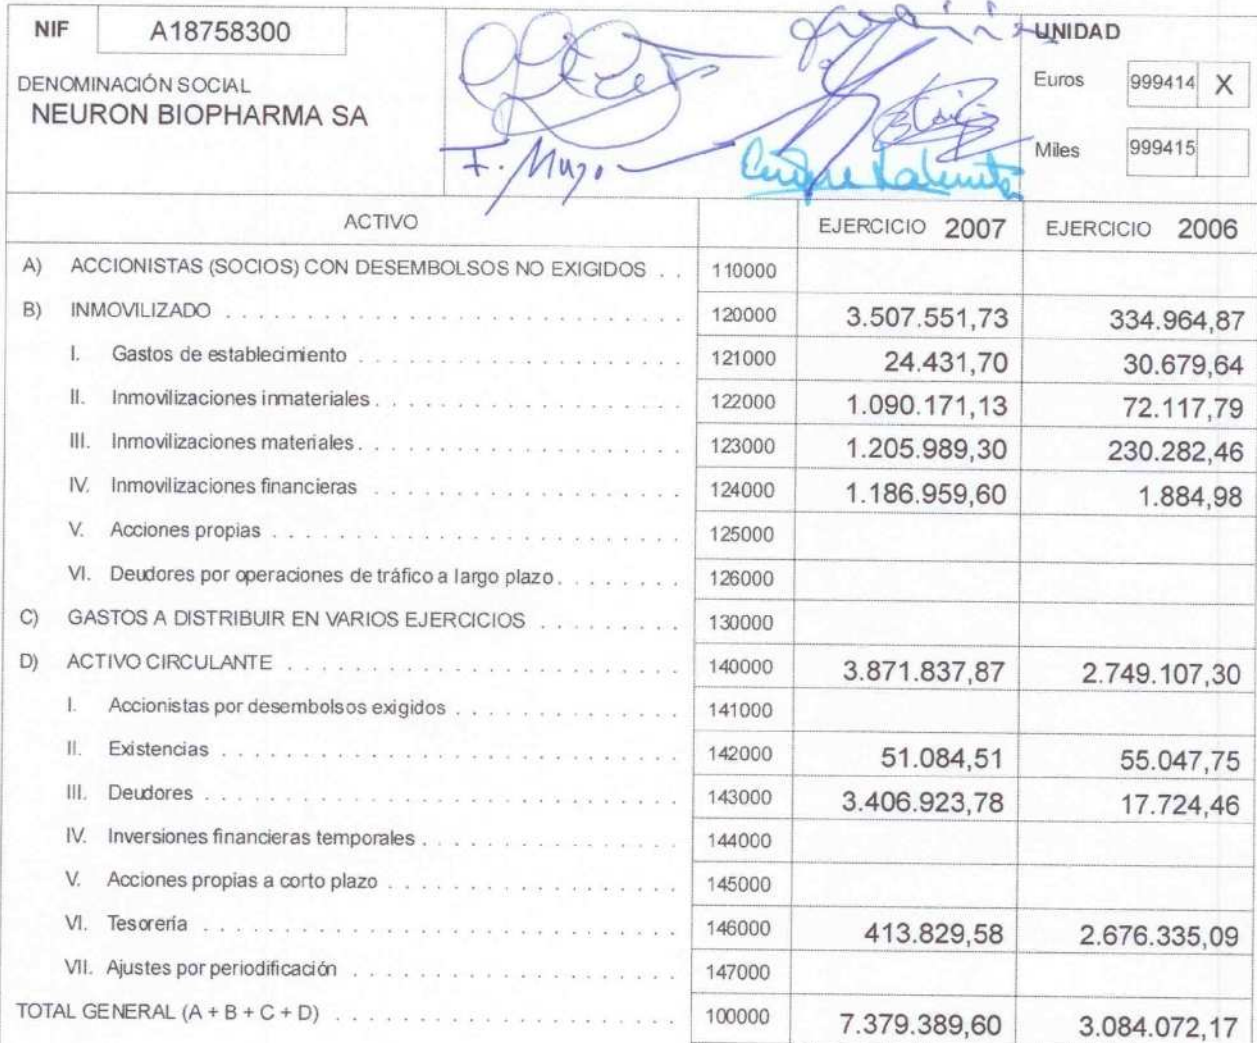 NIF A18758300
UNIDAD
DENOMINACIÓN SOCIAL
NEURON BIOPHARMA SA
Euros 999414 X
F. Muzo
Miles 999415
Enrique
ACTIVO EJERCICIO 2007 EJERCICIO 2006
A) ACCIONISTAS (SOCIOS) CON DESEMBOLSOS NO EXIGIDOS . . 110000
B) INMOVILIZADO 120000 3.507.551,73 334.964,87
I. Gastos de establecimiento 121000 24.431,70 30.679,64
II. Inmovilizaciones inmateriales 122000 1.090.171,13 72.117,79
III. Inmovilizaciones materiales 123000 1.205.989,30 230.282,46
IV. Inmovilizaciones financieras 124000 1.186.959,60 1.884,98
V. Acciones propias 125000
VI. Deudores por operaciones de tráfico a largo plazo 126000
C) GASTOS A DISTRIBUIR EN VARIOS EJERCICIOS 130000
D) ACTIVO CIRCULANTE 140000 3.871.837,87 2.749.107,30
I. Accionistas por desembolsos exigidos 141000
II. Existencias 142000 51.084,51 55.047,75
III. Deudores 143000 3.406.923,78 17.724,46
IV. Inversiones financieras temporales 144000
V. Acciones propias a corto plazo 145000
VI. Tesorería 146000 413.829,58 2.676.335,09
VII. Ajustes por periodificación 147000
TOTAL GENERAL (A + B + C + D) 100000 7.379.389,60 3.084.072,17